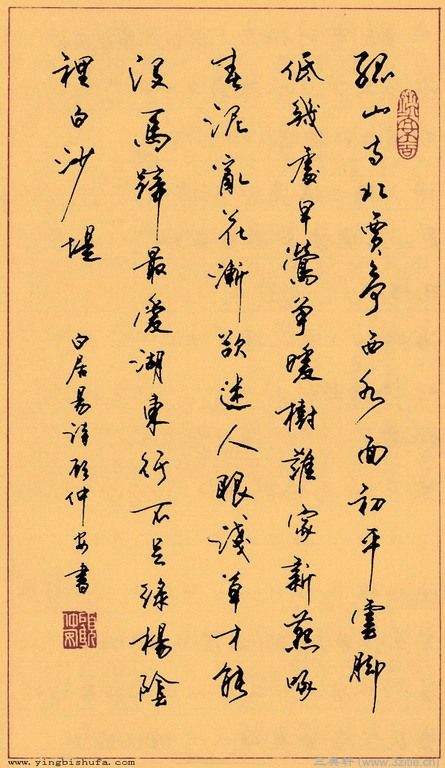 孤山寺北賈亭西水面初平雲脚
低幾處早鶯爭暖樹誰家新燕啄
春泥亂花漸欲迷人眼淺草才能
沒馬蹄最愛湖東行不足綠楊陰
裡白沙堤
白居易詩顧仲安書
www.yingbishufa.com